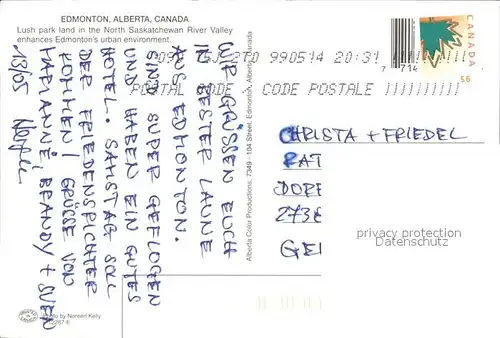 EDMONTON, ALBERTA, CANADA
Lush park land in the North Saskatchewan River Valley
enhances Edmonton's urban environment.
WIR GRÜSSEN EUCH
IN BESTER LAUNE
AUS EDMONTON.
SIND SUPER GEFLOGEN
UND HABEN EIN GUTES
HOTEL. SAMSTAG SOLL
DER FRIEDENSRICHTER
KOMMEN! GRÜSSE VON
MARIANNE, BRANDY + SVEN
13/05
Alberta Color Productions, 7349 - 104 Street, Edmonton, Alberta, Canada
Photo by Noreen Kelly
CANADA
56
7714
990514 20:31
POSTAL CODE CODE POSTALE
CHRISTA + FRIEDEL
RAT
DORF
2738
GEI
privacy protection
Datenschutz